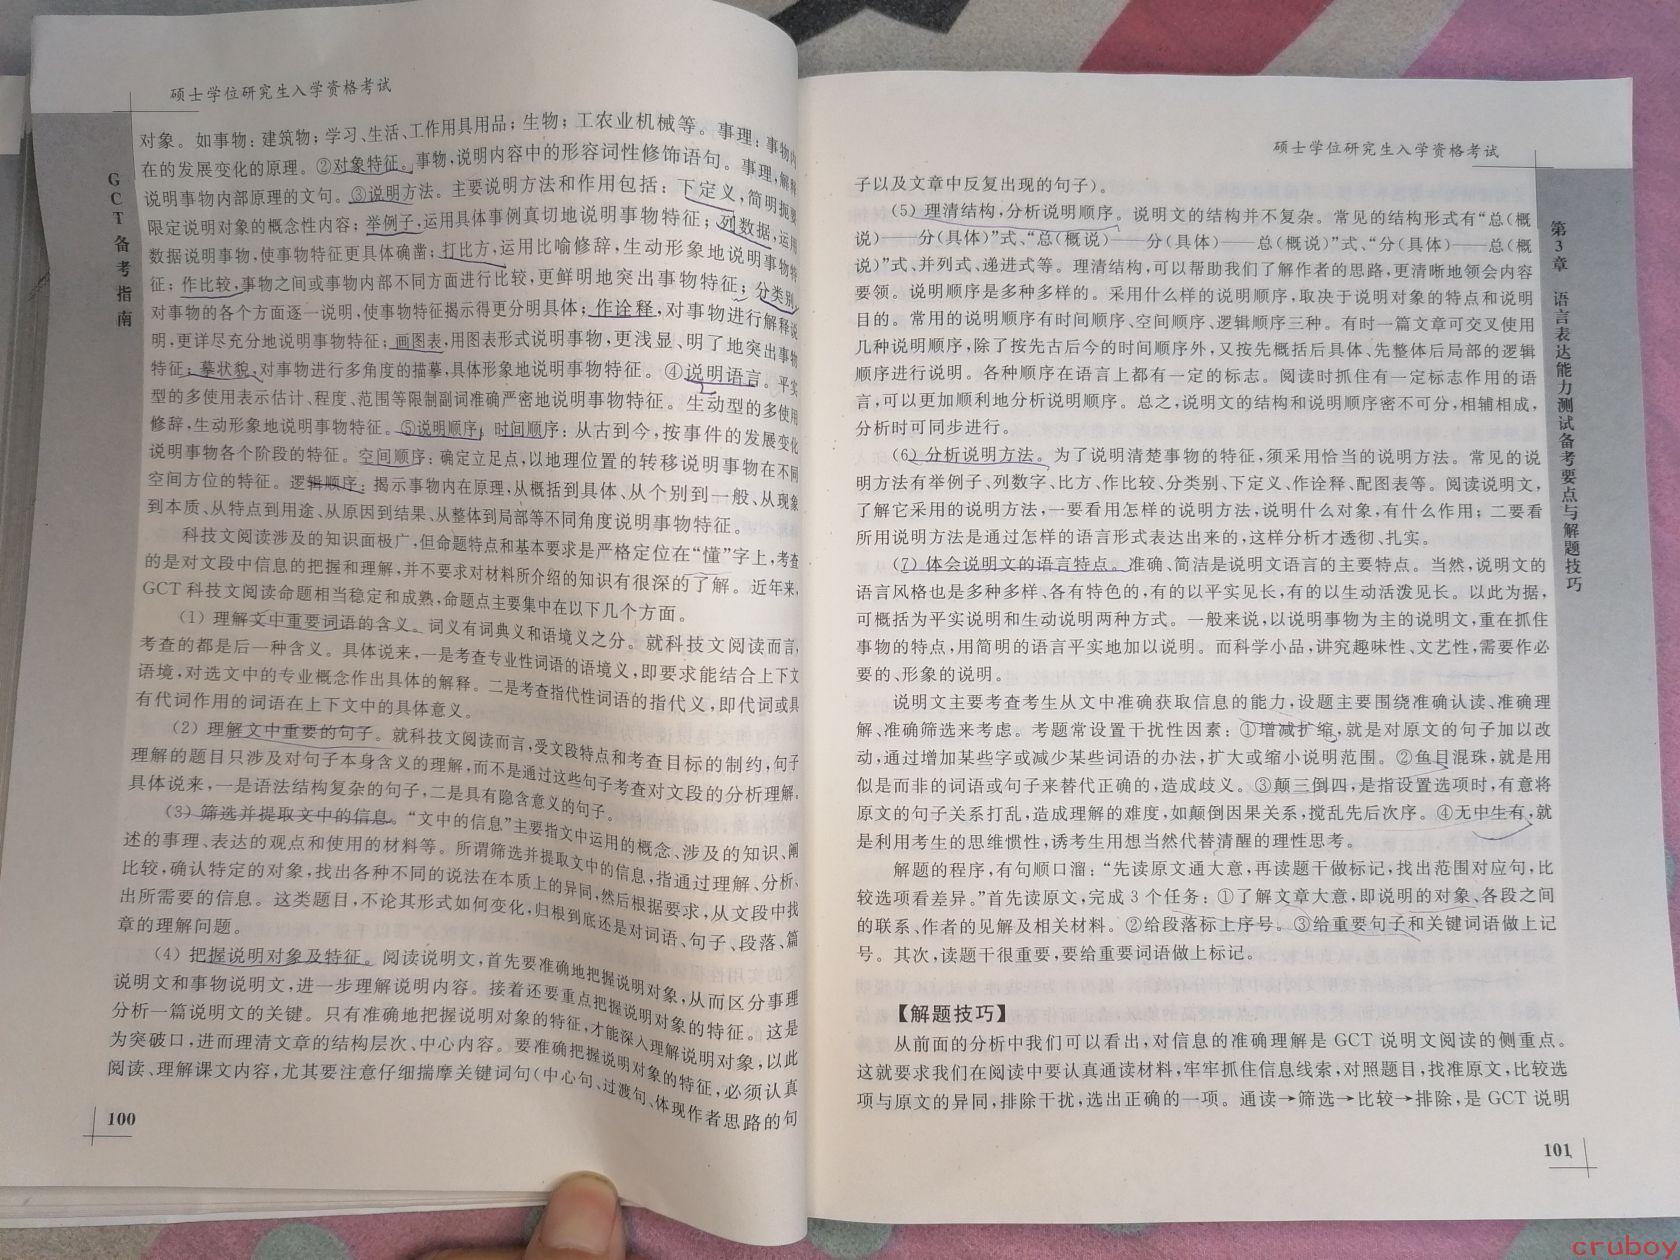 硕士学位研究生入学资格考试
GCT备考指南
对象。如事物:建筑物;学习、生活、工作用具用品;生物;工农业机械等。事理:事物内
在的发展变化的原理。②对象特征。事物,说明内容中的形容词性修饰语句。事理,解释
说明事物内部原理的文句。③说明方法。主要说明方法和作用包括:下定义,简明扼要
限定说明对象的概念性内容;举例子,运用具体事例真切地说明事物特征;列数据,运用
数据说明事物,使事物特征更具体确凿;打比方,运用比喻修辞,生动形象地说明事物特
征;作比较,事物之间或事物内部不同方面进行比较,更鲜明地突出事物特征;分类别,
对事物的各个方面逐一说明,使事物特征揭示得更分明具体;作诠释,对事物进行解释说
明,更详尽充分地说明事物特征;画图表,用图表形式说明事物,更浅显、明了地突出事物
特征;摹状貌,对事物进行多角度的描摹,具体形象地说明事物特征。④说明语言。平实
型的多使用表示估计、程度、范围等限制副词准确严密地说明事物特征。生动型的多使用
修辞,生动形象地说明事物特征。⑤说明顺序,时间顺序:从古到今,按事件的发展变化
说明事物各个阶段的特征。空间顺序:确定立足点,以地理位置的转移说明事物在不同
空间方位的特征。逻辑顺序:揭示事物内在原理,从概括到具体、从个别到一般、从现象
到本质、从特点到用途、从原因到结果、从整体到局部等不同角度说明事物特征。
科技文阅读涉及的知识面极广,但命题特点和基本要求是严格定位在“懂”字上,考查
的是对文段中信息的把握和理解,并不要求对材料所介绍的知识有很深的了解。近年来,
GCT科技文阅读命题相当稳定和成熟,命题点主要集中在以下几个方面。
(1) 理解文中重要词语的含义。词义有词典义和语境义之分。就科技文阅读而言,
考查的都是后一种含义。具体说来,一是考查专业性词语的语境义,即要求能结合上下文
语境,对选文中的专业概念作出具体的解释。二是考查指代性词语的指代义,即代词或具
有代词作用的词语在上下文中的具体意义。
(2) 理解文中重要的句子。就科技文阅读而言,受文段特点和考查目标的制约,句子
理解的题目只涉及对句子本身含义的理解,而不是通过这些句子考查对文段的分析理解。
具体说来,一是语法结构复杂的句子,二是具有隐含意义的句子。
(3) 筛选并提取文中的信息。“文中的信息”主要指文中运用的概念、涉及的知识、阐
述的事理、表达的观点和使用的材料等。所谓筛选并提取文中的信息,指通过理解、分析、
比较,确认特定的对象,找出各种不同的说法在本质上的异同,然后根据要求,从文段中找
出所需要的信息。这类题目,不论其形式如何变化,归根到底还是对词语、句子、段落、篇
章的理解问题。
(4) 把握说明对象及特征。阅读说明文,首先要准确地把握说明对象,从而区分事理
说明文和事物说明文,进一步理解说明内容。接着还要重点把握说明对象的特征。这是
分析一篇说明文的关键。只有准确地把握说明对象的特征,才能深入理解说明对象,以此
为突破口,进而理清文章的结构层次、中心内容。要准确把握说明对象的特征,必须认真
阅读、理解课文内容,尤其要注意仔细揣摩关键词句(中心句、过渡句、体现作者思路的句
100
硕士学位研究生入学资格考试
第3章 语言表达能力测试备考要点与解题技巧
子以及文章中反复出现的句子)。
(5) 理清结构,分析说明顺序。说明文的结构并不复杂。常见的结构形式有“总(概
说)——分(具体)”式、“总(概说)——分(具体)——总(概说)”式、“分(具体)——总(概
说)”式、并列式、递进式等。理清结构,可以帮助我们了解作者的思路,更清晰地领会内容
要领。说明顺序是多种多样的。采用什么样的说明顺序,取决于说明对象的特点和说明
目的。常用的说明顺序有时间顺序、空间顺序、逻辑顺序三种。有时一篇文章可交叉使用
几种说明顺序,除了按先古后今的时间顺序外,又按先概括后具体、先整体后局部的逻辑
顺序进行说明。各种顺序在语言上都有一定的标志。阅读时抓住有一定标志作用的语
言,可以更加顺利地分析说明顺序。总之,说明文的结构和说明顺序密不可分,相辅相成,
分析时可同步进行。
(6) 分析说明方法。为了说明清楚事物的特征,须采用恰当的说明方法。常见的说
明方法有举例子、列数字、比方、作比较、分类别、下定义、作诠释、配图表等。阅读说明文,
了解它采用的说明方法,一要看用怎样的说明方法,说明什么对象,有什么作用;二要看
所用说明方法是通过怎样的语言形式表达出来的,这样分析才透彻、扎实。
(7) 体会说明文的语言特点。准确、简洁是说明文语言的主要特点。当然,说明文的
语言风格也是多种多样、各有特色的,有的以平实见长,有的以生动活泼见长。以此为据,
可概括为平实说明和生动说明两种方式。一般来说,以说明事物为主的说明文,重在抓住
事物的特点,用简明的语言平实地加以说明。而科学小品,讲究趣味性、文艺性,需要作必
要的、形象的说明。
说明文主要考查考生从文中准确获取信息的能力,设题主要围绕准确认读、准确理
解、准确筛选来考虑。考题常设置干扰性因素:①增减扩缩,就是对原文的句子加以改
动,通过增加某些字或减少某些词语的办法,扩大或缩小说明范围。②鱼目混珠,就是用
似是而非的词语或句子来替代正确的,造成歧义。③颠三倒四,是指设置选项时,有意将
原文的句子关系打乱,造成理解的难度,如颠倒因果关系,搅乱先后次序。④无中生有,就
是利用考生的思维惯性,诱考生用想当然代替清醒的理性思考。
解题的程序,有句顺口溜:“先读原文通大意,再读题干做标记,找出范围对应句,比
较选项看差异。”首先读原文,完成3个任务:①了解文章大意,即说明的对象、各段之间
的联系、作者的见解及相关材料。②给段落标上序号。③给重要句子和关键词语做上记
号。其次,读题干很重要,要给重要词语做上标记。
【解题技巧】
从前面的分析中我们可以看出,对信息的准确理解是GCT说明文阅读的侧重点。
这就要求我们在阅读中要认真通读材料,牢牢抓住信息线索,对照题目,找准原文,比较选
项与原文的异同,排除干扰,选出正确的一项。通读→筛选→比较→排除,是GCT说明
101
cruboy